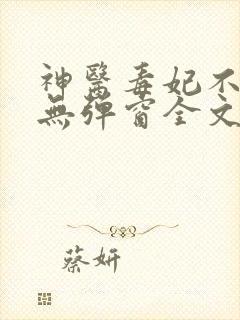 神醫毒妃不
無彈窗全文
蔡妍